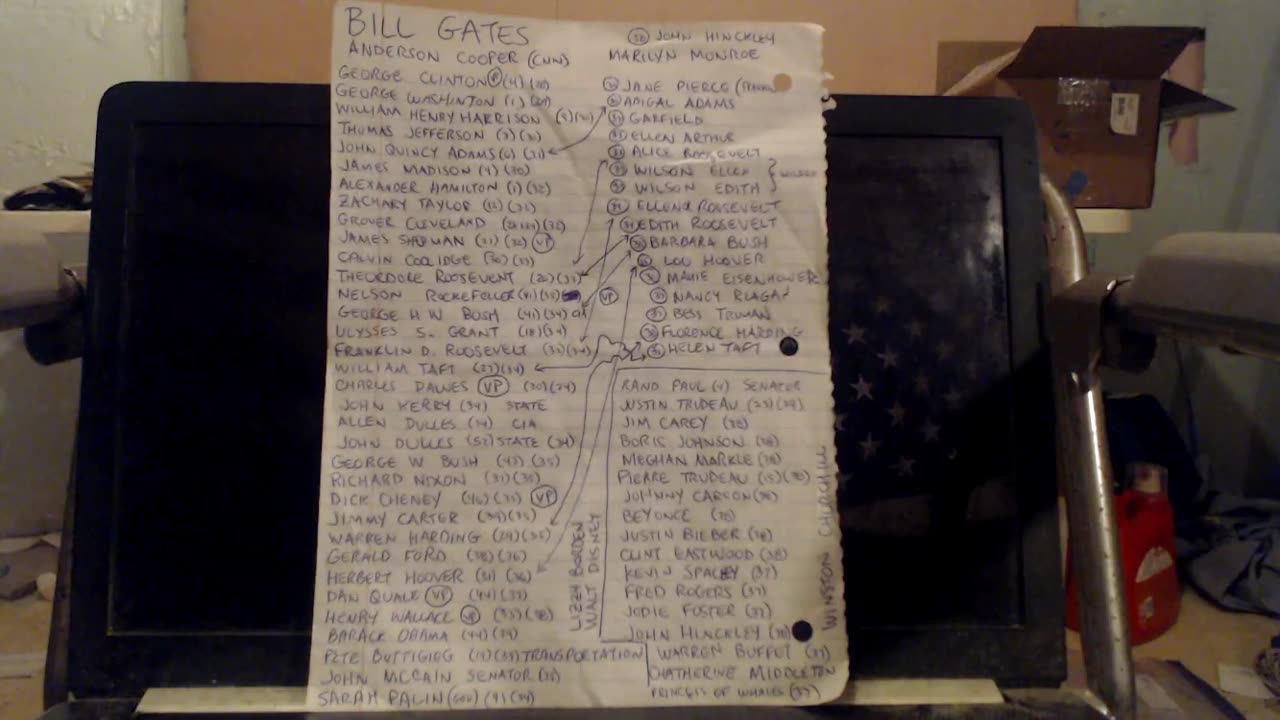 BILL GATES
ANDERSON COOPER (CNN)
GEORGE CLINTON VP (4)
GEORGE WASHINTON (1)
WILLIAM HENRY HARRISON (9)
THOMAS JEFFERSON (3)
JOHN QUINCY ADAMS (6) (31)
JAMES MADISON (4) (30)
ALEXANDER HAMILTON (1) (32)
ZACHARY TAYLOR (12) (32)
GROVER CLEVELAND (32)
JAMES SHERMAN VP
CALVIN COOLIDGE (30) (33)
THEORDORE ROOSEVENT (26) (33)
NELSON ROCKEFELLER (41) (35) VP
GEORGE H W BUSH (41) (34)
ULYSSES S. GRANT (18) (34)
FRANKLIN D. ROOSEVELT (32) (34)
WILLIAM TAFT (27) (34)
CHARLES DAWES VP (30) (34)
JOHN KERRY (34) STATE
ALLEN DULLES (34) CIA
JOHN DULLES (52) STATE (34)
GEORGE W BUSH (43) (35)
RICHARD NIXON (35)
DICK CHENEY (46) (35) VP
JIMMY CARTER (39) (35)
WARREN HARDING (29) (35)
GERALD FORD (38) (36)
HERBERT HOOVER (31) (36)
DAN QUALE VP (44) (37)
HENRY WALLACE VP (33) (38)
BARACK OBAMA (44) (39)
PETE BUTTIGIEG (19) (39) TRANSPORTATION
JOHN MCCAIN SENATOR
SARAH PALIN (GOV)
JOHN HINCKLEY
MARILYN MONROE
JANE PIERCE
ABIGAL ADAMS
GARFIELD
ELLEN ARTHUR
ALICE ROOSEVELT
WILSON ELLEN
WILSON EDITH
WILSON
ROOSEVELT
EDITH ROOSEVELT
BARBARA BUSH
LOU HOOVER
MAMIE EISENHOWER
NANCY REAGAN
BESS TRUMAN
FLORENCE HARDING
HELEN TAFT
RAND PAUL (4) SENATOR
JUSTIN TRUDEAU (23) (39)
JIM CAREY (38)
BORIS JOHNSON (38)
MEGHAN MARKLE (38)
PIERRE TRUDEAU (15) (38)
JOHNNY CARSON (38)
BEYONCE (38)
JUSTIN BIEBER (38)
CLINT EASTWOOD (38)
KEVIN SPACEY (37)
FRED ROGERS (37)
JODIE FOSTER (37)
JOHN HINCKLEY (38)
WARREN BUFFET (37)
CHATHERINE MIDDLETON
PRINCESS OF WHALES (37)
LIZZY BORDEN
WALT DISNEY
WINSTON CHURCHILL